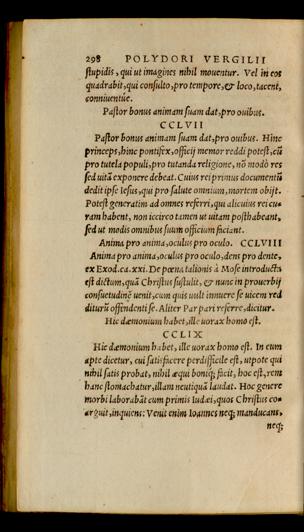 298 POLYDORI VERGILII
stupidis, qui ut imagines nihil mouentur. Vel in eos
quadrabit, qui consulto, pro tempore, & loco, tacent,
conniuentúe.
Pastor bonus animam suam dat, pro ouibus.
CCLVII
Pastor bonus animam suam dat, pro ouibus. Hinc
princeps, hinc pontifex, officij memor reddi potest, cũ
pro tutela populi, pro tutanda religione, nõ modò res
sed uitã exponere debeat. Cuius rei primus documentũ
dedit ipse Iesus, qui pro salute omnium, mortem obijt.
Potest generatim ad omnes referri, qui alicuius rei cu-
ram habent, non iccirco tamen ut uitam posthabeant,
sed ut modis omnibus suum officium faciant.
Anima pro anima, oculus pro oculo. CCLVIII
Anima pro anima, oculus pro oculo, dens pro dente,
ex Exod. ca. xxi. De pœna talionis à Mose introducta
est dictum, quã Christus sustulit, & nunc in prouerbij
consuetudinẽ uenit, cum quis uult innuere se uicem red
diturũ offendenti se. Aliter Par pari referre, dicitur.
Hic dæmonium habet, ille uorax homo est.
CCLIX
Hic dæmonium habet, ille uorax homo est. In eum
apte dicetur, cui satisfacere perdifficile est, utpote qui
nihil satis probat, nihil æqui boniq; facit, hoc est, rem
hanc stomachatur, illam neutiquã laudat. Hoc genere
morbi laborabãt cum primis Iudæi, quos Christus co-
arguit, inquiens: Venit enim Ioannes neq; manducans,
neq;